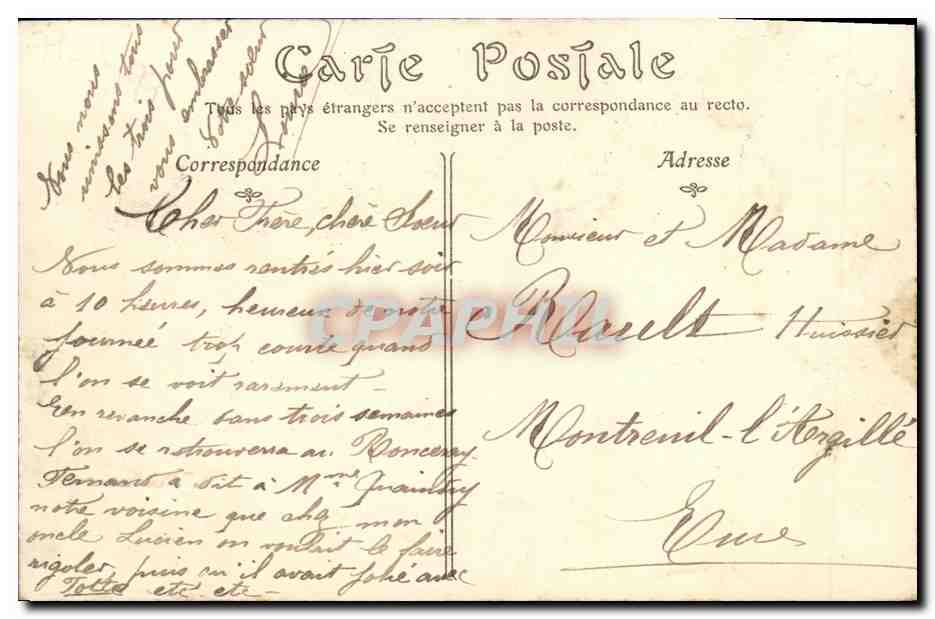 Carte Postale
Tous les pays étrangers n'acceptent pas la correspondance au recto.
Se renseigner à la poste.
Correspondance
Adresse
Cher Frère, chère Soeur
Nous sommes rentrés hier soir
à 10 heures, heureux de notre
journée trop courte quand
l'on se voit rarement -
En revanche dans trois semaines
l'on se retrouvera au Ronceray
Fernand a dit à Mme
notre voisine que chez mon
oncle Lucien on voulait le faire
rigoler, puis qu'il avait joué avec
Totte etc etc -
Nous nous
unissons tous
les trois pour
vous embrasser
Votre soeur
Monsieur et Madame
Rault Huissier
Montreuil-l'Argillé
Eure
CPAPHIL